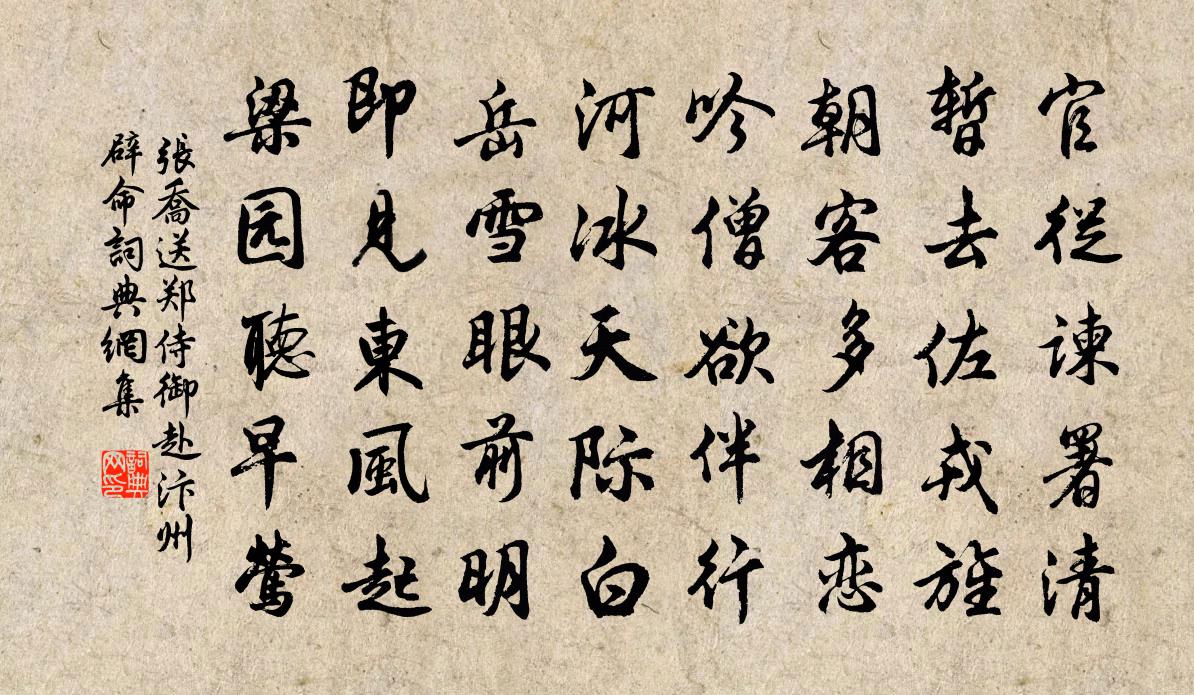 官從諫署清
暫去佐戎旌
朝客多相恋
吟僧欲伴行
河冰天际白
岳雪眼前明
即見東風起
梁园聽早鶯
張喬送郑侍御赴汴州
辟命詞典網集
詞典
网印